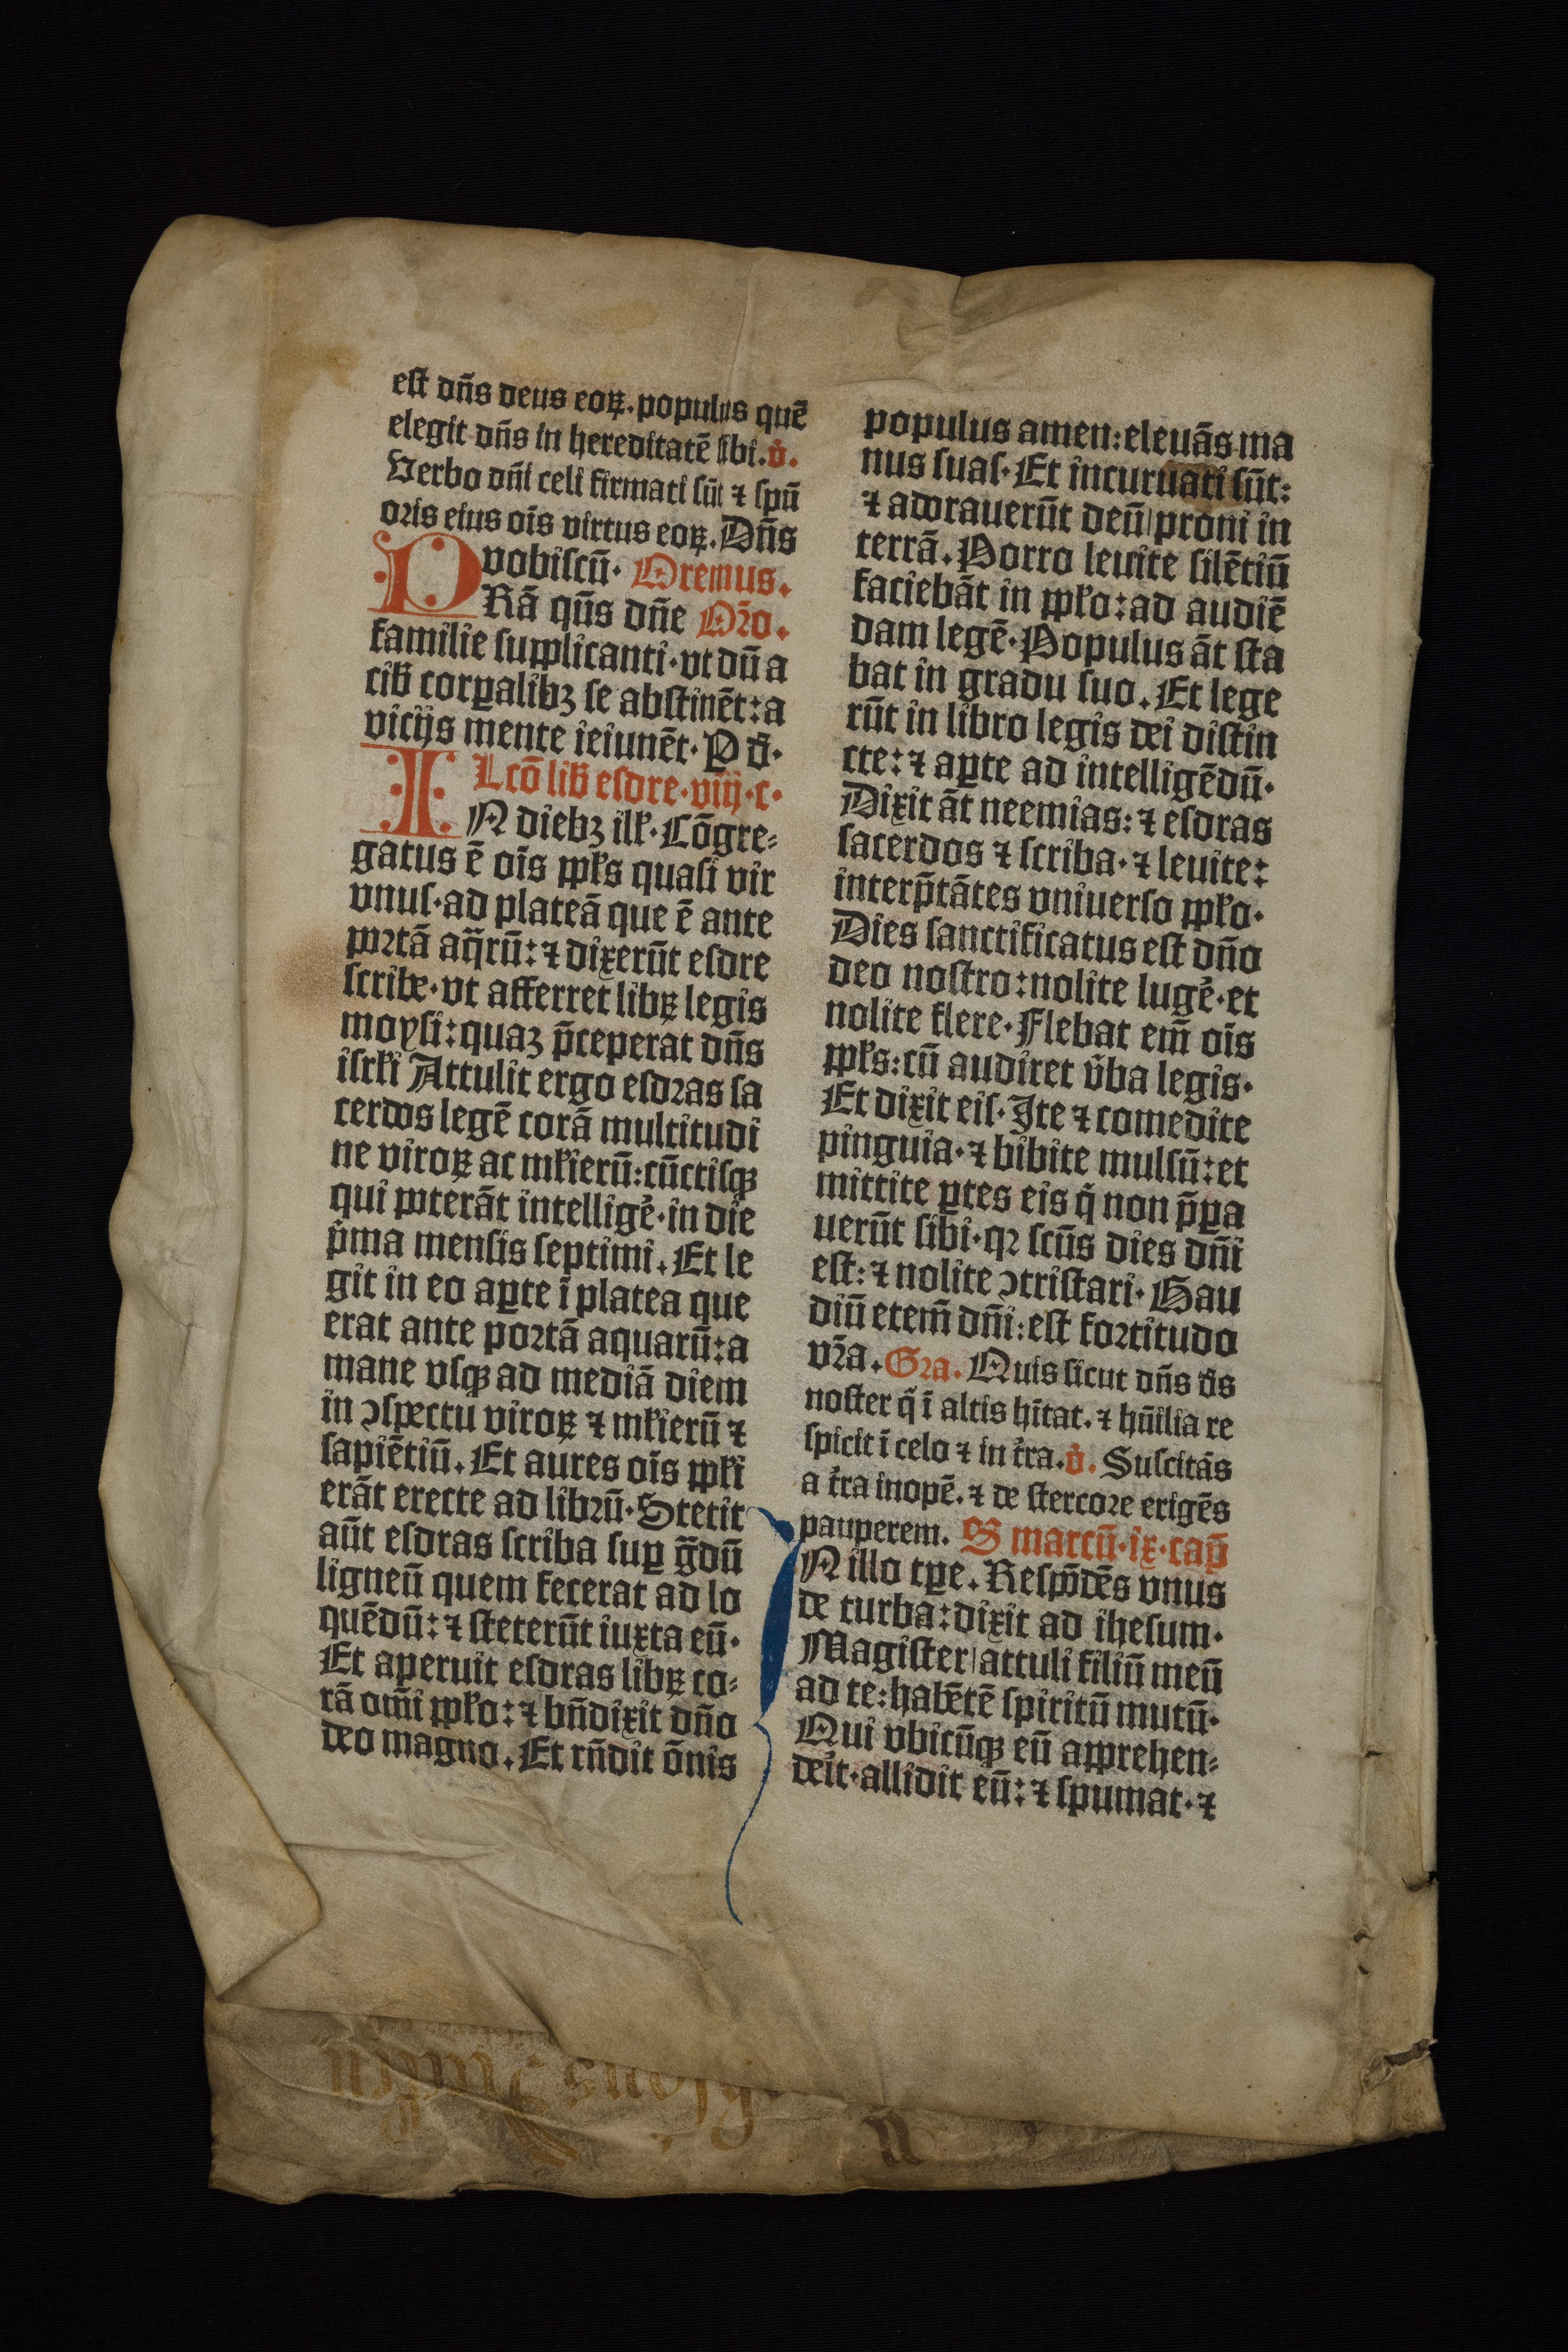 est dn̄s deus eoꝝ. populus quē
elegit dn̄s in hereditatē sibi. v̇.
Verbo dn̄i celi firmati sūt ⁊ spū
oris eius oīs virtus eoꝝ. Dn̄s
vobiscū· Oremus.
PRā qūs dn̄e Or̄o.
familie supplicanti·vt dū a
cib̄ corꝑalibꝫ se abstinēt: a
vicijs mente ieiunēt· P d̄·
Lcō lib̄ esdre·viij·c·
IN diebꝫ ill̄·Cōgre⸗
gatus ē oīs ppl̄s quasi vir
vnus·ad plateā que ē ante
portā aq̄rū: ⁊ dixerūt esdre
scribe·vt afferret libꝝ legis
moysi: quaꝫ p̄ceperat dn̄s
isrl̄i Attulit ergo esdras sa
cerdos legē corā multitudi
ne viroꝝ ac ml̄ierū: cūctisqꝫ
qui poterāt intellige᷑·in die
p̄ma mensis septimi. Et le
git in eo aꝑte ī platea que
erat ante portā aquarū: a
mane vsqꝫ ad mediā diem
in ɔspectu viroꝝ ⁊ ml̄ierū ⁊
sapiētiū. Et aures oīs ppl̄i
erāt erecte ad librū·Stetit
aūt esdras scriba suꝑ ḡdū
ligneū quem fecerat ad lo
quēdū: ⁊ steterūt iuxta eū·
Et aperuit esdras libꝝ co⸗
rā om̄i ppl̄o: ⁊ bn̄dixit dn̄o
deo magno. Et rn̄dit ōnis
populus amen: eleuās ma
nus suas·Et incuruati sūt:
⁊ adorauerūt deū|proni in
terrā. Porro leuite silētiū
faciebāt in ppl̄o: ad audiē
dam legē·Populus āt sta
bat in gradu suo. Et lege
rūt in libro legis dei distin
cte: ⁊ aꝑte ad intelligēdū·
Dixit āt neemias: ⁊ esdras
sacerdos ⁊ scriba·⁊ leuite:
interp̄tātes vniuerso ppl̄o·
Dies sanctificatus est dn̄o
deo nostro: nolite luge᷑·et
nolite flere·Flebat em̄ oīs
ppl̄s: cū audiret v̄ba legis·
Et dixit eis·Ite ⁊ comedite
pinguia·⁊ bibite mulsū: et
mittite ꝑtes eis q̄ non p̄ꝑa
uerūt sibi·qꝛ scūs dies dn̄i
est: ⁊ nolite ɔtristari·Gau
diū etem̄ dn̄i: est fortitudo
vr̄a. Gra. Quis sicut dn̄s d̄s
noster q̄ ī altis hītat. ⁊ hūilia re
spicit ī celo ⁊ in t᷑ra. v̇. Suscitās
a t᷑ra inopē. ⁊ de stercore erigēs
pauperem. S marcū·ix·cap̄
IN illo tꝑe. Respōdēs vnus
de turba: dixit ad ihesum·
Magister|attuli filiū meū
ad te: habētē spiritū mutū·
Qui vbicūqꝫ eū apprehen⸗
deit·allidit eū: ⁊ spumat·⁊